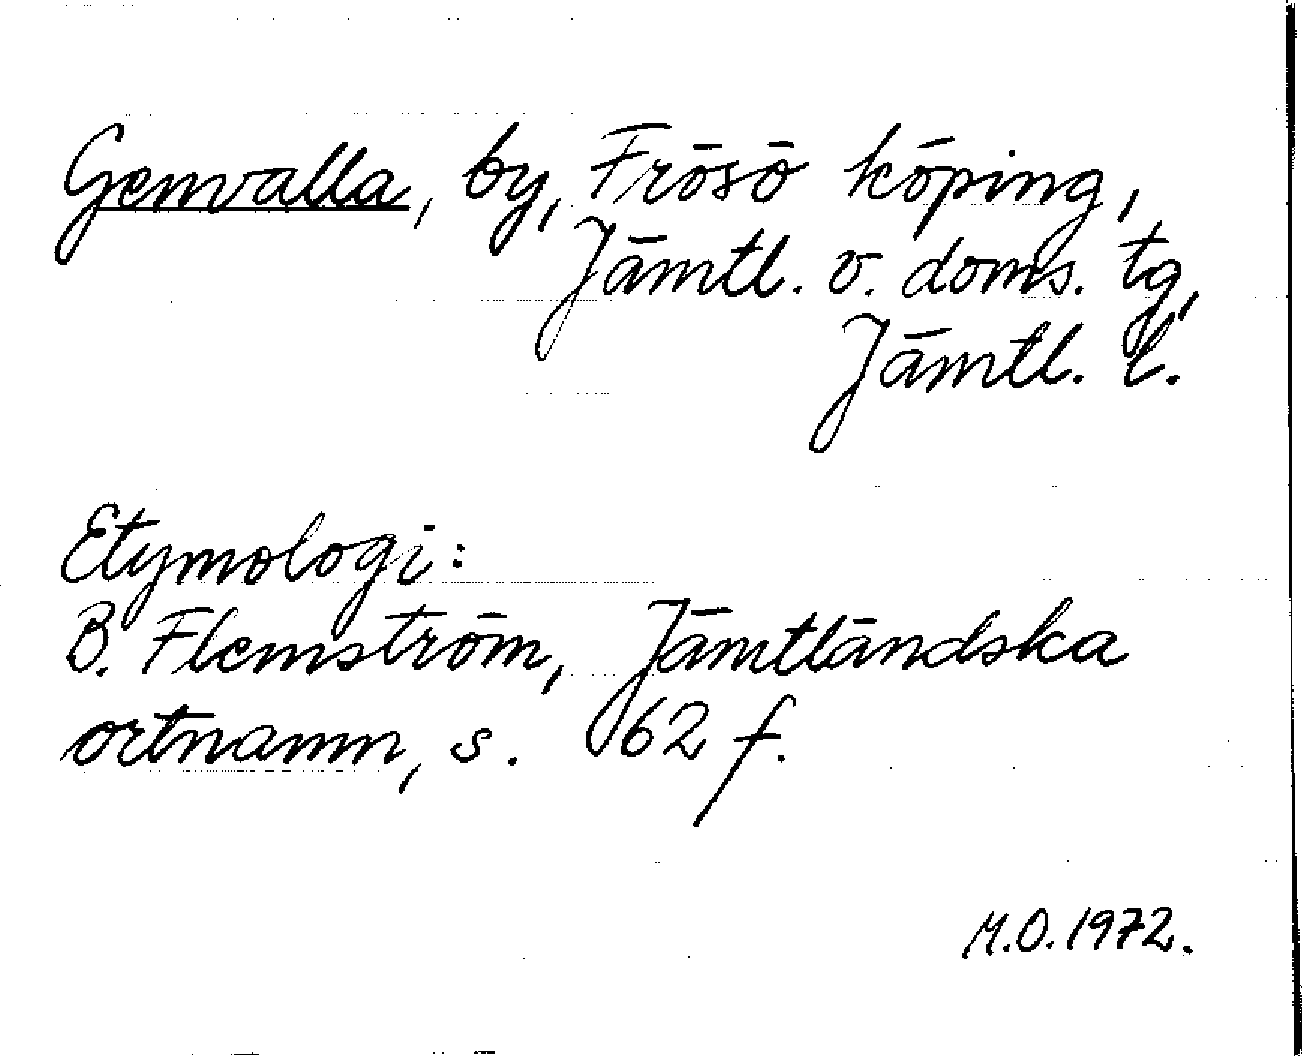 Genvalla, by, Frösö köping,
Jämtl. v. doms. tg,
Jämtl. l.
Etymologi:
B. Flemström, Jämtländska
ortnamn, s. 62 f.
M.O. 1972.